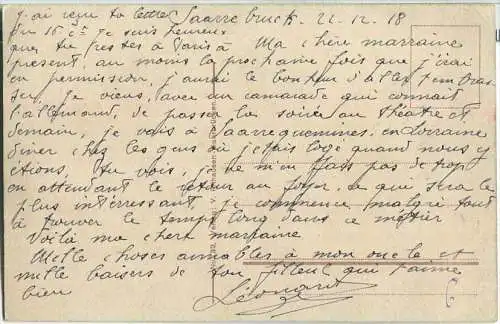 j'ai reçu ta lettre Saarrebruck. 22-12-18
du 16 ct Je suis heureux
que tu restes à Paris à Ma chère marraine
présent, au moins la prochaine fois que j'irai
en permission, j'aurai le bonheur d'aller t'embras-
ser, Je viens, avec un camarade qui connait
l'allemand, de passer la soirée au théâtre et
demain, je vais à Saarreguemines, en Lorraine
diner chez les gens où j'étais logé quand nous y
étions, Tu vois, je ne m'en fais pas de trop
en attendant le retour au foyer, ce que sera le
plus intéressant, je commence malgré tout
à trouver le temps long dans ce métier
Voilà ma chère marraine
Mille choses aimables à mon oncle et
mille baisers de ton filleul qui t'aime
bien
Léonard